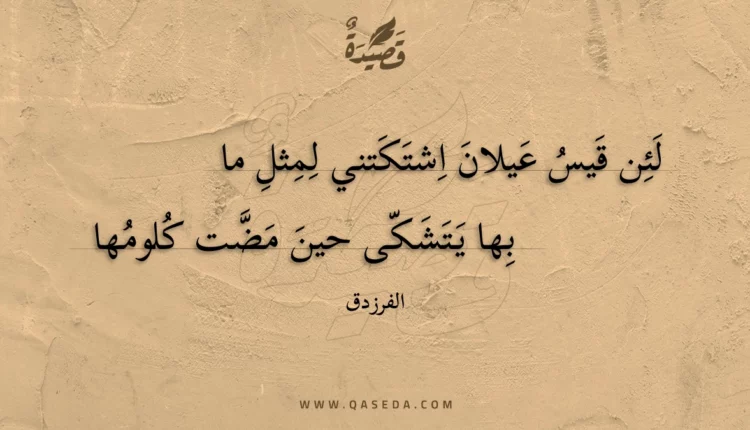 قَصِيْدَةٌ
لَئِن قَيسُ عَيلانَ اِشتَكَتني لِمِثلِ ما
بِها يَتَشَكّى حينَ مَضَّت كُلومُها
الفرزدق
WWW.QASEDA.COM